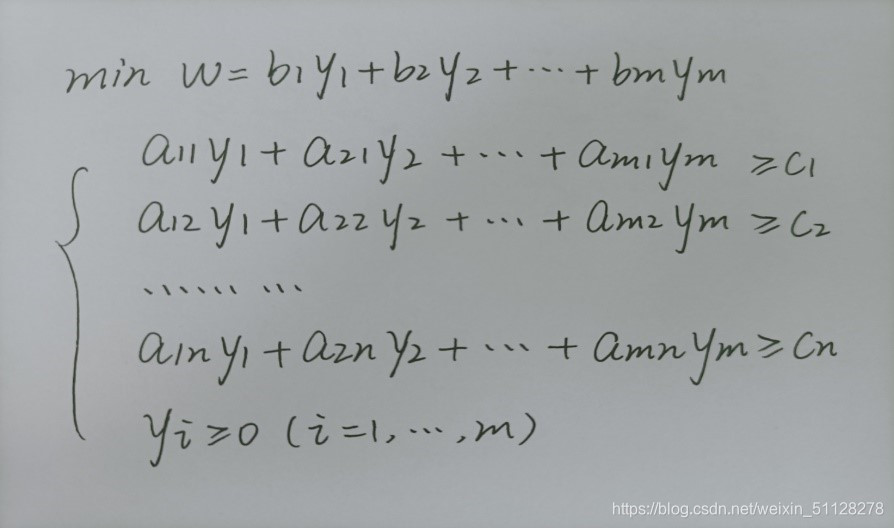 min w = b₁y₁ + b₂y₂ + ⋯ + bₘyₘ
a₁₁y₁ + a₂₁y₂ + ⋯ + aₘ₁yₘ ≥ c₁
a₁₂y₁ + a₂₂y₂ + ⋯ + aₘ₂yₘ ≥ c₂
⋯⋯ ⋯
a₁ₙy₁ + a₂ₙy₂ + ⋯ + aₘₙyₘ ≥ cₙ
yᵢ ≥ 0 (i = 1, ⋯, m)
https://blog.csdn.net/weixin_51128278